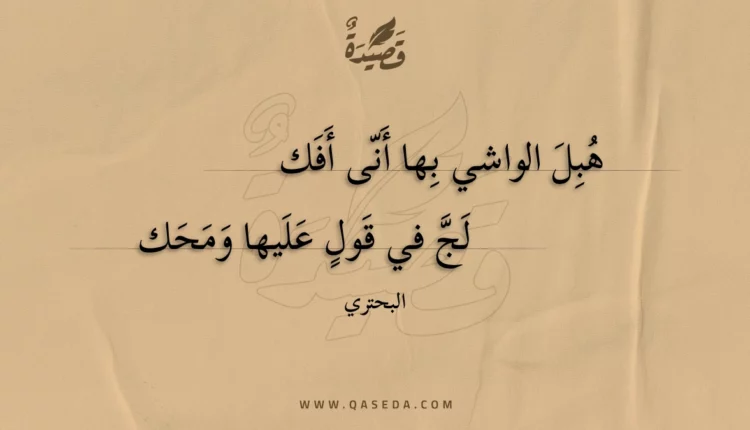 قَصِيدَةٌ
هُبِلَ الواشي بِها أَنّى أَفَك
لَجَّ في قَولٍ عَلَيها وَمَحَك
البحتري
WWW.QASEDA.COM